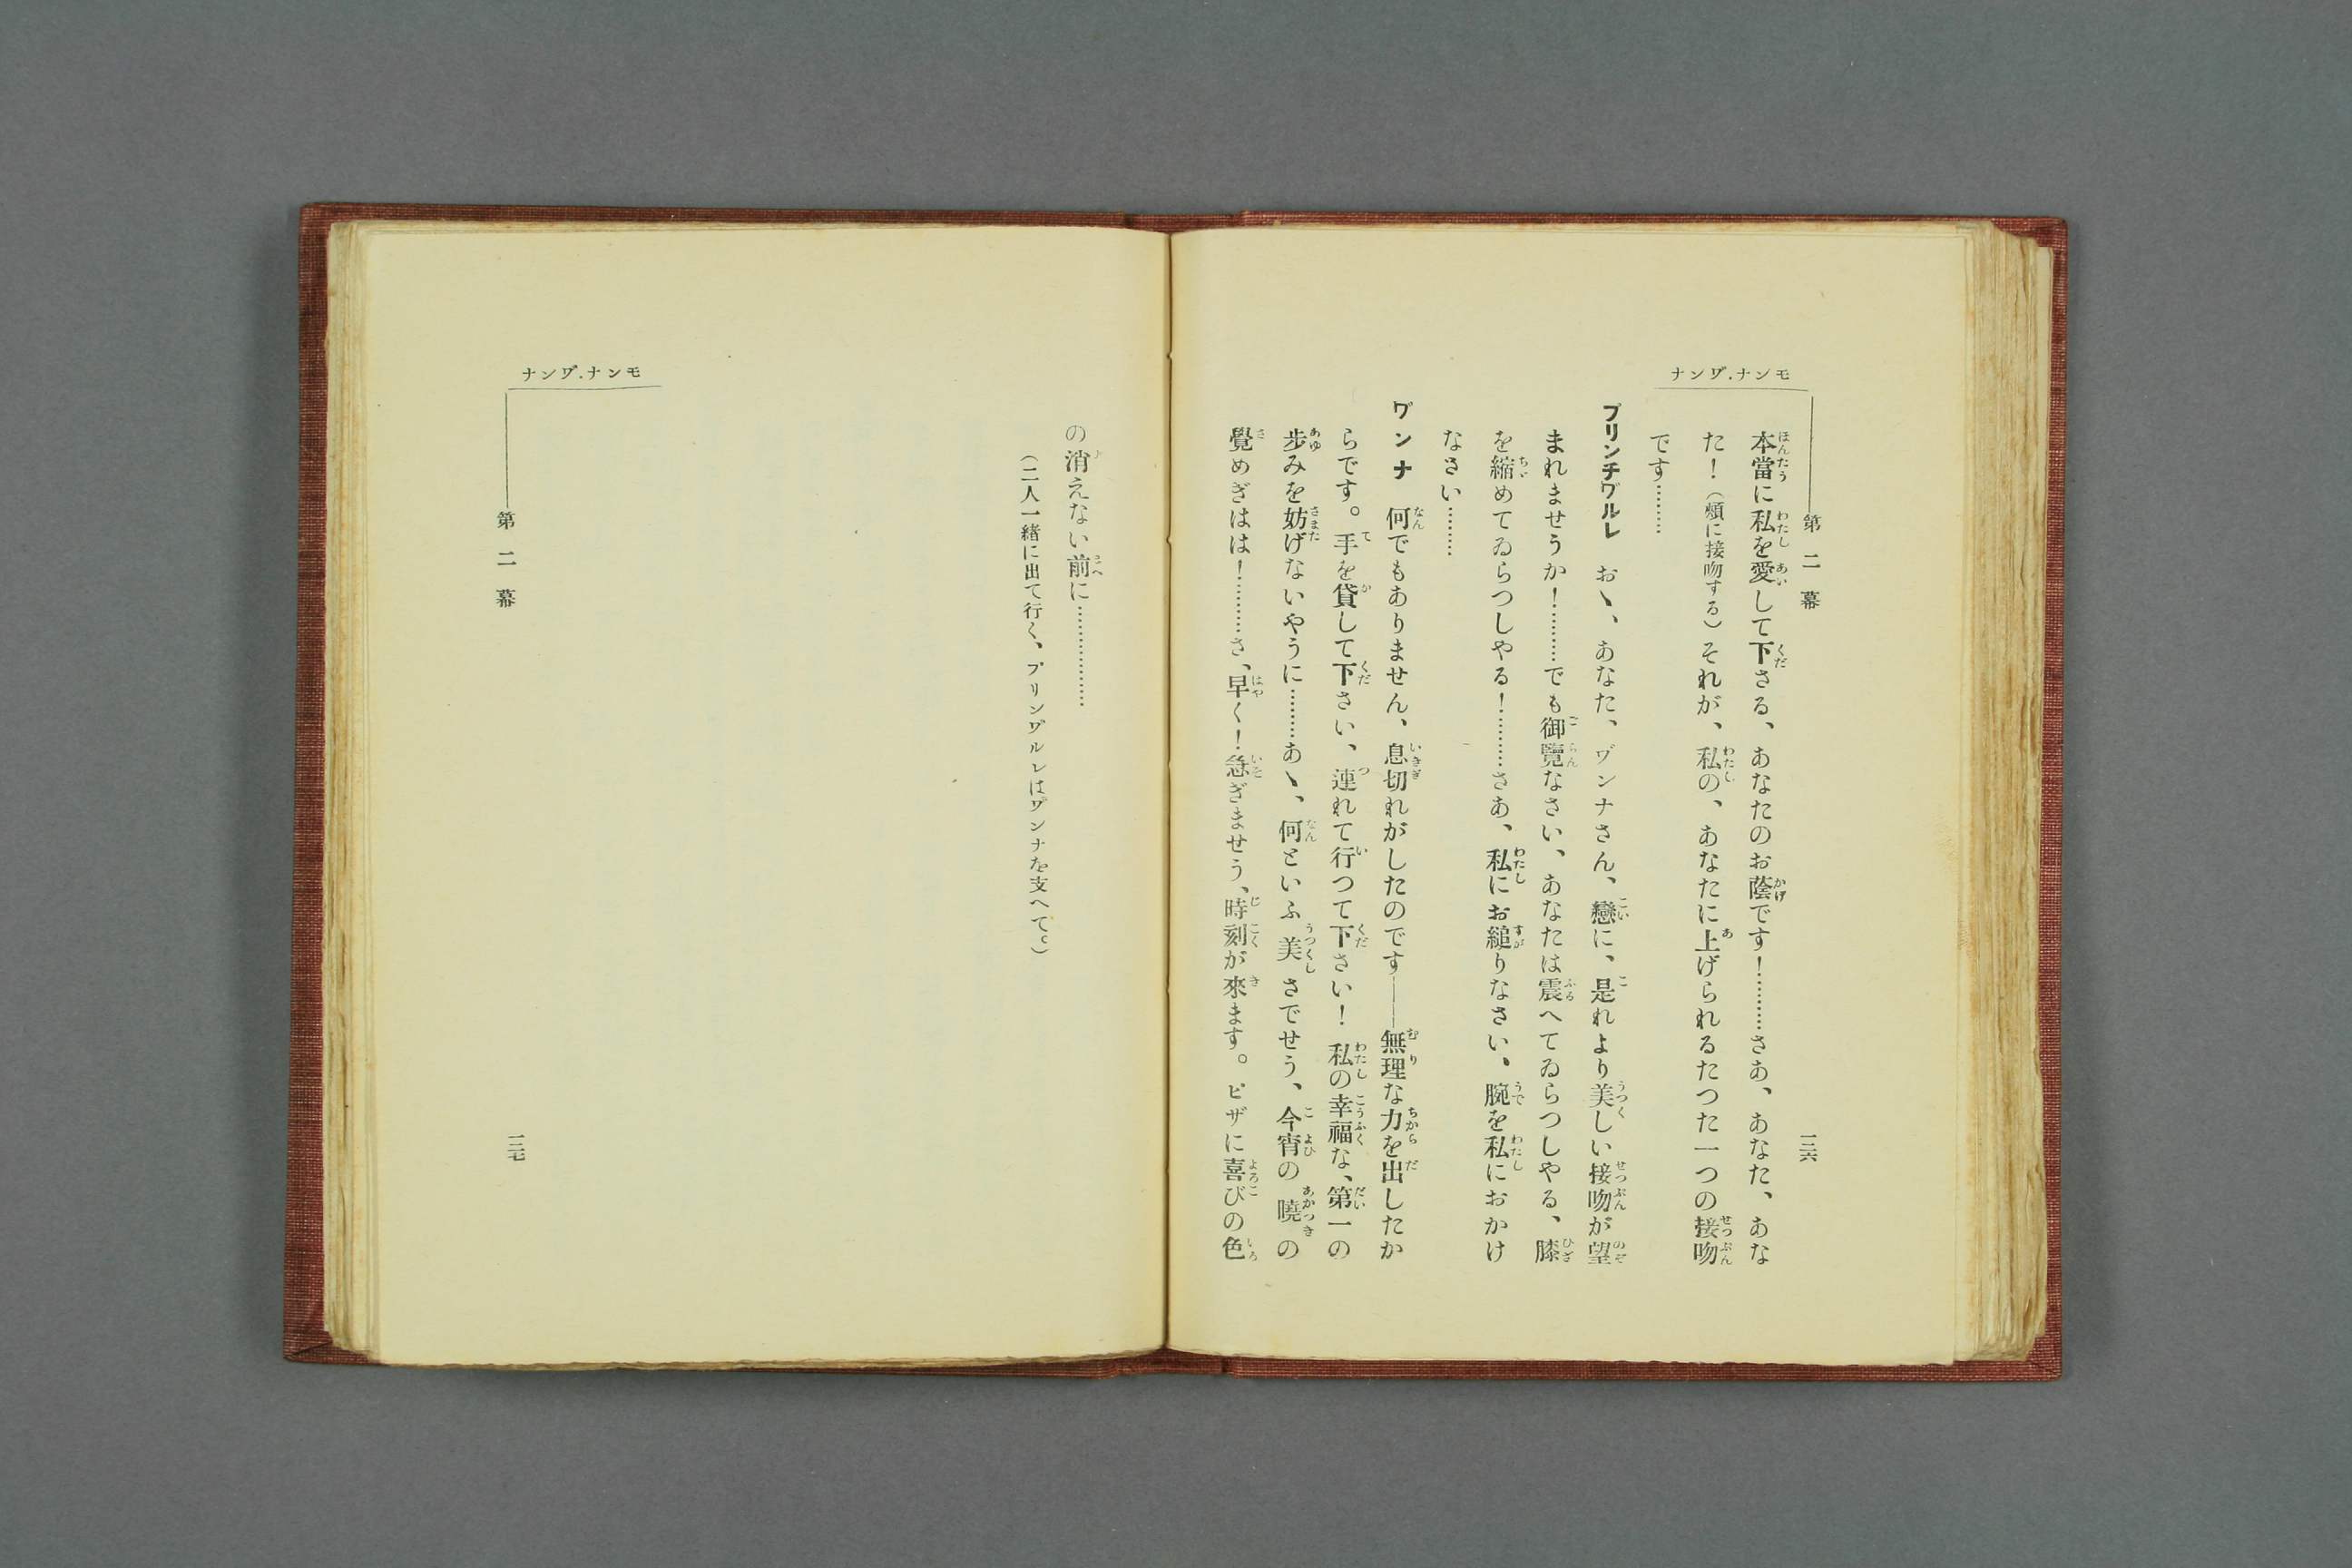 モンナ.ヷンナ
第二幕
一三六
本當に私を愛して下さる、あなたのお蔭です!………さあ、あなた、あな
た!(頰に接吻する)それが、私の、あなたに上げられるたつた一つの接吻
です………
プリンチヷルレ おヽ、あなた、ヷンナさん、戀に、是れより美しい接吻が望
まれませうか!………でも御覽なさい、あなたは震へてゐらつしやる、膝
を縮めてゐらつしやる!………さあ、私にお縋りなさい、腕を私におかけ
なさい………
ヷンナ 何でもありません、息切れがしたのです――無理な力を出したか
らです。手を貸して下さい、連れて行つて下さい!私の幸福な、第一の
歩みを妨げないやうに………あヽ、何といふ美さでせう、今宵の曉の
覺めぎはは!………さ、早く!急ぎませう、時刻が來ます。ピザに喜びの色
モンナ.ヷンナ
第二幕
一三七
の消えない前に……………
(二人一緒に出て行く、プリンヷルレはヷンナを支へて。)